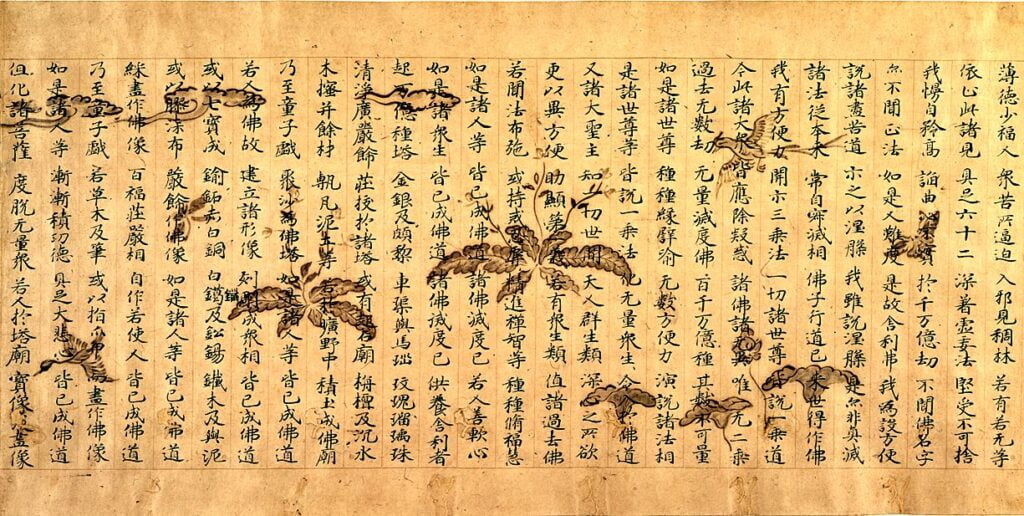 薄德少福人 衆苦所逼迫 入邪見稠林 若有若无等
依止此諸見 具足六十二 深著虛妄法 堅受不可捨
我慢自矜高 諂曲心不實 於千万億劫 不聞佛名字
亦不聞正法 如是人難度 是故舍利弗 我為設方便
說諸盡苦道 示之以涅槃 我雖說涅槃 是亦非真滅
諸法從本來 常自寂滅相 佛子行道已 來世得作佛
我有方便力 開示三乘法 一切諸世尊 皆說一乘道
今此諸大衆 皆應除疑惑 諸佛語无異 唯一无二乘
過去无數劫 无量滅度佛 百千万億種 其數不可量
如是諸世尊 種種緣譬喻 无數方便力 演說諸法相
是諸世尊等 皆說一乘法 化无量衆生 令入於佛道
又諸大聖主 知一切世間 天人群生類 深心之所欲
更以異方便 助顯第一義 若有衆生類 值諸過去佛
若聞法布施 或持戒忍辱 精進禪智等 種種脩福慧
如是諸人等 皆已成佛道 諸佛滅度已 若人善軟心
如是諸衆生 皆已成佛道 諸佛滅度已 供養舍利者
起万億種塔 金銀及頗黎 車渠與馬瑙 玫瑰瑠璃珠
清淨廣嚴飾 莊挍於諸塔 或有起石廟 栴檀及沉水
木櫁并餘材 甎瓦泥土等 若於曠野中 積土成佛廟
乃至童子戲 聚沙為佛塔 如是諸人等 皆已成佛道
若人為佛故 建立諸形像 刻彫成衆相 皆已成佛道
或以七寶成 鍮鉐赤白銅 白鑞及鉛錫 鐵木及與泥
或以膠漆布 嚴飾作佛像 如是諸人等 皆已成佛道
綵畫作佛像 百福莊嚴相 自作若使人 皆已成佛道
乃至童子戲 若草木及筆 或以指爪甲 而畫作佛像
如是諸人等 漸漸積功德 具足大悲心 皆已成佛道
但化諸菩薩 度脫无量衆 若人於塔廟 寶像及畫像